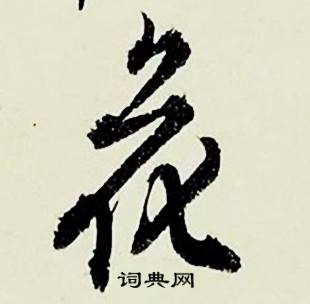 花
词典网